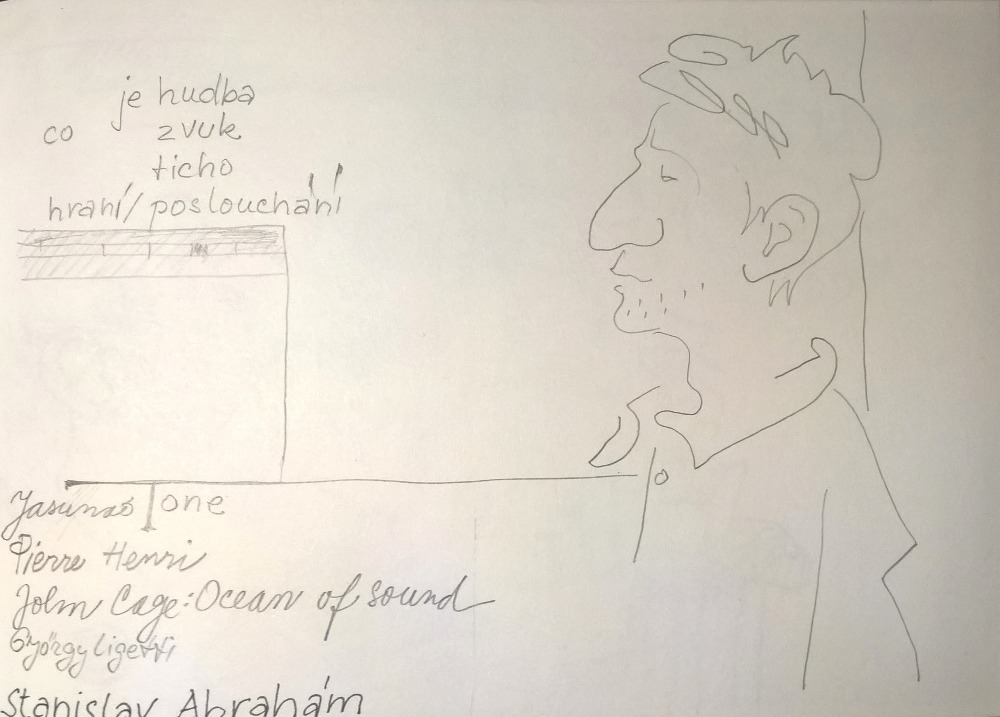 je hudba
co zvuk
ticho
hraní/poslouchání
Yasunao Tone
Pierre Henri
John Cage: Ocean of sound
György Ligetti
Stanislav Abrahám